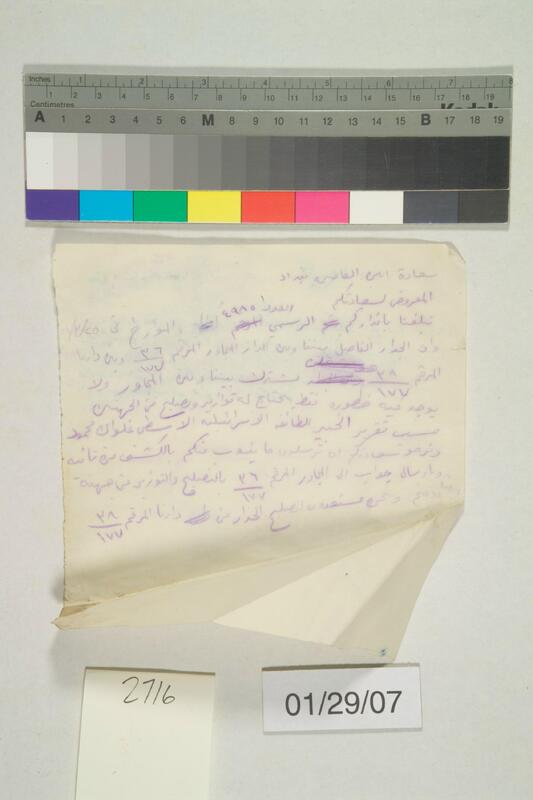 Inches 1 2 3 4 5 6 7 8
Centimetres 1 2 3 4 5 6 7 8 9 10 11 12 13 14 15 16 17 18 19
Kodak
A 1 2 3 4 5 6 M 8 9 10 11 12 13 14 15 B 17 18 19
سعادة امين العاصمة بغداد
المعروض لسعادتكم
تبلغنا بانذاركم الرسمي العدد ٤٩٨٥ والمؤرخ في
وان الجدار الفاصل بيننا وبين الدار المجاور المرقم ٣٦/١٧٧ وبين دارنا
المرقم ٣٨/١٧٧ مشترك بيننا وبين المجاور ولا
يوجد فيه خطورة فقط يحتاج الى توازير وتصليح من الجهتين
حسب تقرير الخبير للطائفة الاسرائيلية الاسطى
ونرجو سعادتكم ان ترسلون من ينوب عنكم بالكشف مرة ثانية
وبارسال جواب الى المجاور المرقم ٣٦/١٧٧ بالتصليح والتوزير من جهته
ونحن مستعدون لتصليح الجدار من دارنا المرقم ٣٨/١٧٧
2716
01/29/07